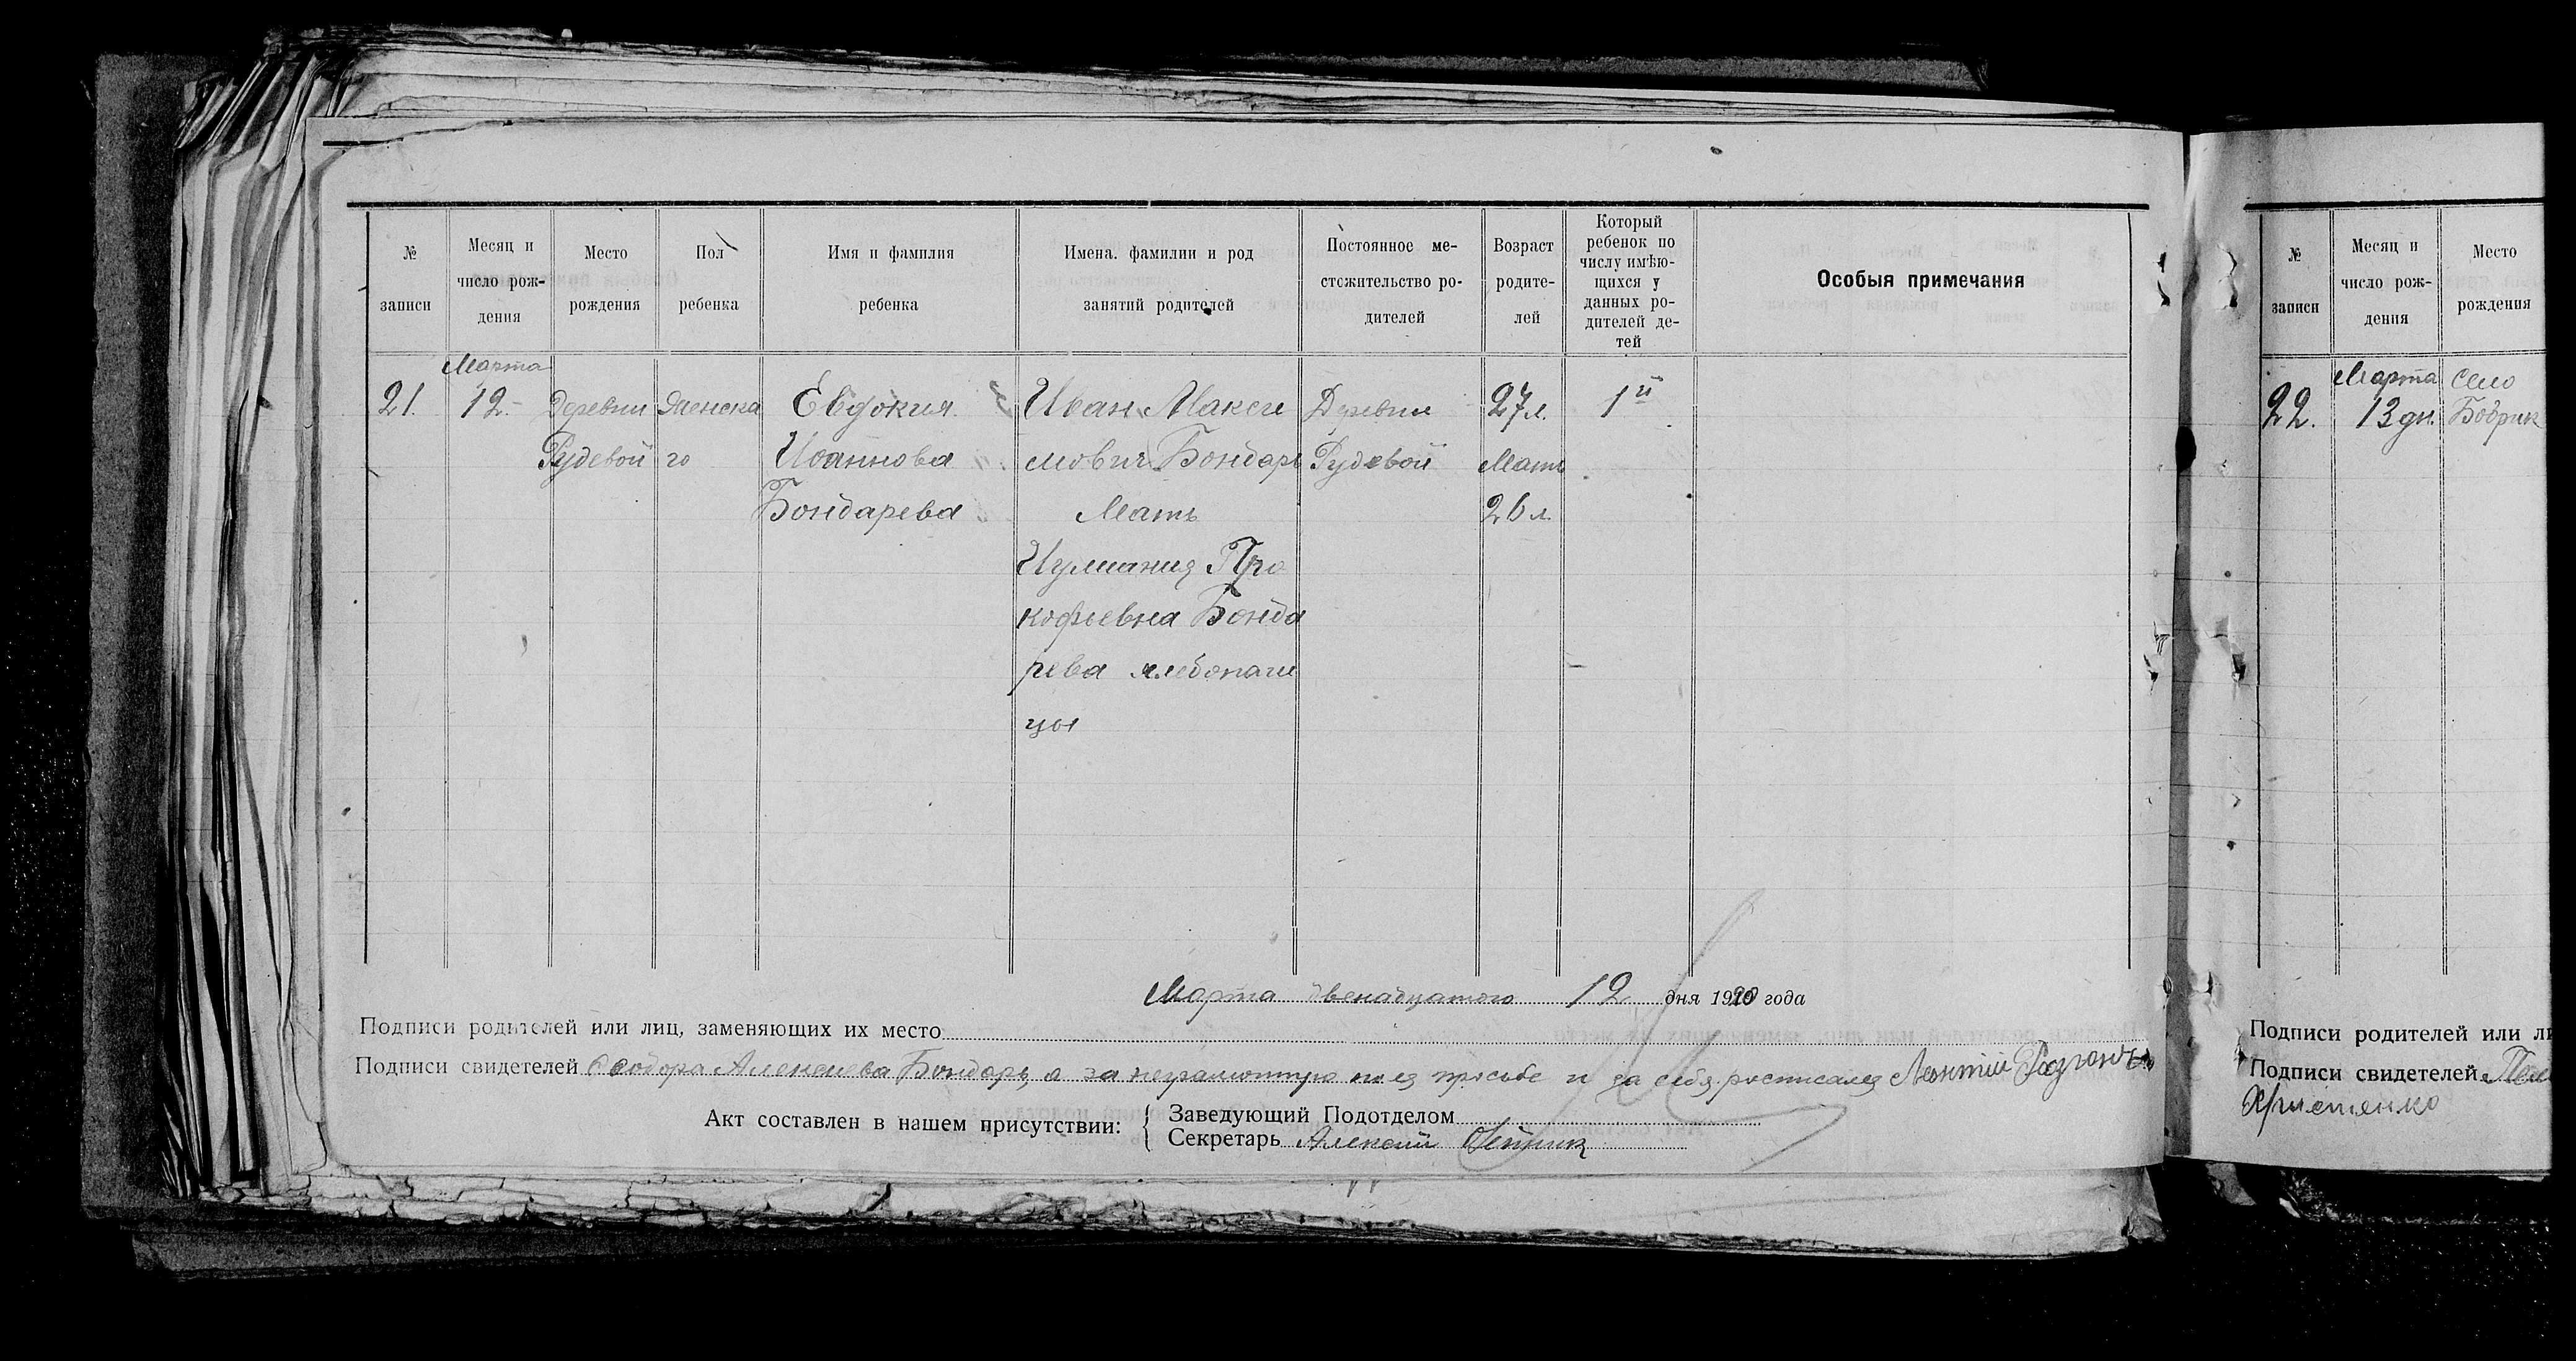 № записи
Месяц и число рождения
Место рождения
Пол ребенка
Имя и фамилия ребенка
Имена. фамилии и род занятий родителей
Постоянное местожительство родителей
Возраст родителей
Который ребенок по числу имѣющихся у данных родителей детей
Особыя примечания
Марта
21. 12.- Деревни Женска Евдокия Иван Макси Деревни 27 л. 1й
Рудевой го Иоаннова мович Бондарь Рудевой Мать
Бондарева Мать 26 л.
Иулиания Про
кофьевна Бонда
рева хлебопаш
цы
Марта двенадцатого 12 дня 1920 года
Подписи родителей или лиц, заменяющих их место
Подписи свидетелей Феодора Алексеева Бондарь, а за неграмотную по ея просьбе и за себя росписался Леонтий
Акт составлен в нашем присутствии:
Заведующий Подотделом
Секретарь Алексей
№ записи
Месяц и число рож-
дения
Место
рождения
Марта село
22. 13 дн. Бобрик
Подписи родителей или ли
Подписи свидетелей
Христенко